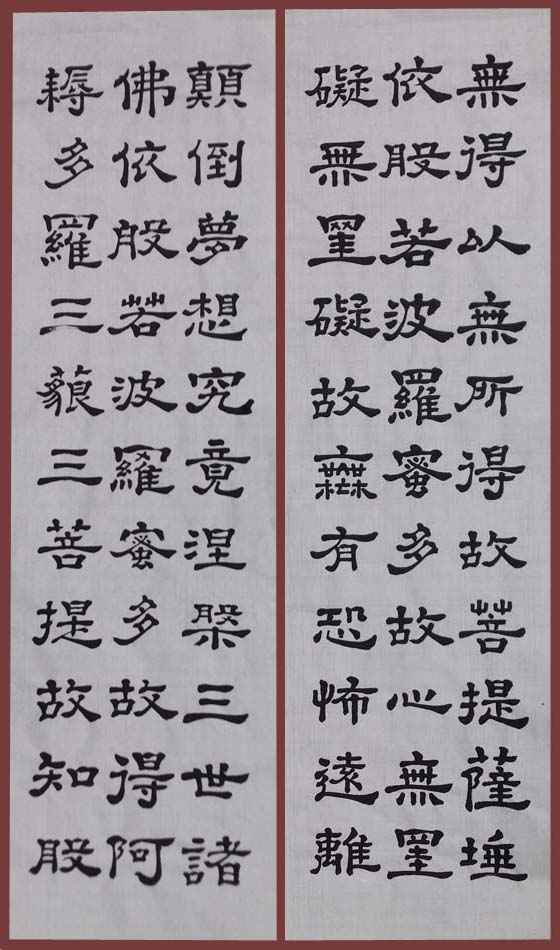 無得以無所得故菩提薩埵
依般若波羅蜜多故心無罣
礙無罣礙故無有恐怖遠離
顛倒夢想究竟涅槃三世諸
佛依般若波羅蜜多故得阿
耨多羅三藐三菩提故知般